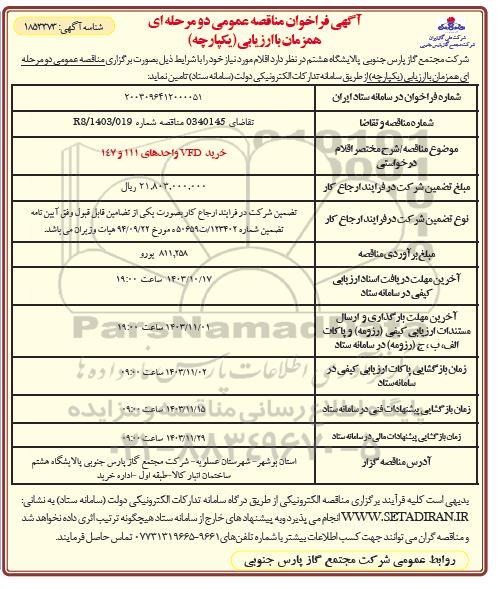 آگهی فراخوان مناقصه عمومی دو مرحله ای
همزمان با ارزیابی (یکپارچه)
شناسه آگهی: ۱۸۵۳۳۷۳
شرکت ملی گاز ایران
شرکت مجتمع گاز پارس جنوبی
شرکت مجتمع گاز پارس جنوبی پالایشگاه هشتم در نظر دارد اقلام مورد نیاز خود را با شرایط ذیل بصورت برگزاری مناقصه عمومی دو مرحله
ای همزمان با ارزیابی (یکپارچه) از طریق سامانه تدارکات الکترونیکی دولت (سامانه ستاد) تامین نماید:
شماره فراخوان در سامانه ستاد ایران
۲۰۰۳۰۹۶۴۱۲۰۰۰۰۵۱
شماره مناقصه و تقاضا
تقاضای 0340145 مناقصه شماره R8/1403/019
موضوع مناقصه/شرح مختصر اقلام
درخواستی
خرید VFD واحدهای ۱۱۱ و ۱۴۷
مبلغ تضمین شرکت در فرایند ارجاع کار
۲۱.۸۰۳.۰۰۰.۰۰۰ ریال
نوع تضمین شرکت در فرایند ارجاع کار
تضمین شرکت در فرایند ارجاع کار بصورت یکی از تضامین قابل قبول وفق آیین نامه
تضمین شماره ۱۲۳۴۰۲/ت۵۰۶۵۹ه مورخ ۹۴/۰۹/۲۲ هیات وزیران می باشد.
مبلغ برآوردی مناقصه
۸۱۱,۲۵۸ یورو
آخرین مهلت دریافت اسناد ارزیابی
کیفی در سامانه ستاد
۱۴۰۳/۱۰/۱۷ ساعت ۱۹:۰۰
آخرین مهلت بارگذاری و ارسال
مستندات ارزیابی کیفی (رزومه) و پاکات
الف، ب، ج (رزومه) در سامانه ستاد
۱۴۰۳/۱۱/۰۱ ساعت ۱۹:۰۰
زمان بازگشایی پاکات ارزیابی کیفی در
سامانه ستاد
۱۴۰۳/۱۱/۰۲ ساعت ۰۹:۰۰
زمان بازگشایی پیشنهادات فنی در سامانه ستاد
۱۴۰۳/۱۱/۱۵ ساعت ۰۹:۰۰
زمان بازگشایی پیشنهادات مالی در سامانه ستاد
۱۴۰۳/۱۱/۲۹ ساعت ۰۹:۰۰
آدرس مناقصه گزار
استان بوشهر- شهرستان عسلویه- شرکت مجتمع گاز پارس جنوبی پالایشگاه هشتم
ساختمان انبار کالا-طبقه اول -اداره خرید
بدیهی است کلیه فرآیند برگزاری مناقصه الکترونیکی از طریق درگاه سامانه تدارکات الکترونیکی دولت (سامانه ستاد) به نشانی:
WWW.SETADIRAN.IR انجام می پذیرد و به پیشنهاد های خارج از سامانه ستاد هیچگونه ترتیب اثری داده نخواهد شد
و مناقصه گران می توانند جهت کسب اطلاعات بیشتر با شماره تلفن های ۹۶۶۱-۰۷۷۳۱۳۱۹۶۶۵ تماس حاصل فرمایند.
روابط عمومی شرکت مجتمع گاز پارس جنوبی
ParsNamadData
پایگاه اطلاع رسانی مناقصه و مزایده
۰۲۱-۸۸۳۴۹۶۷۰-۵